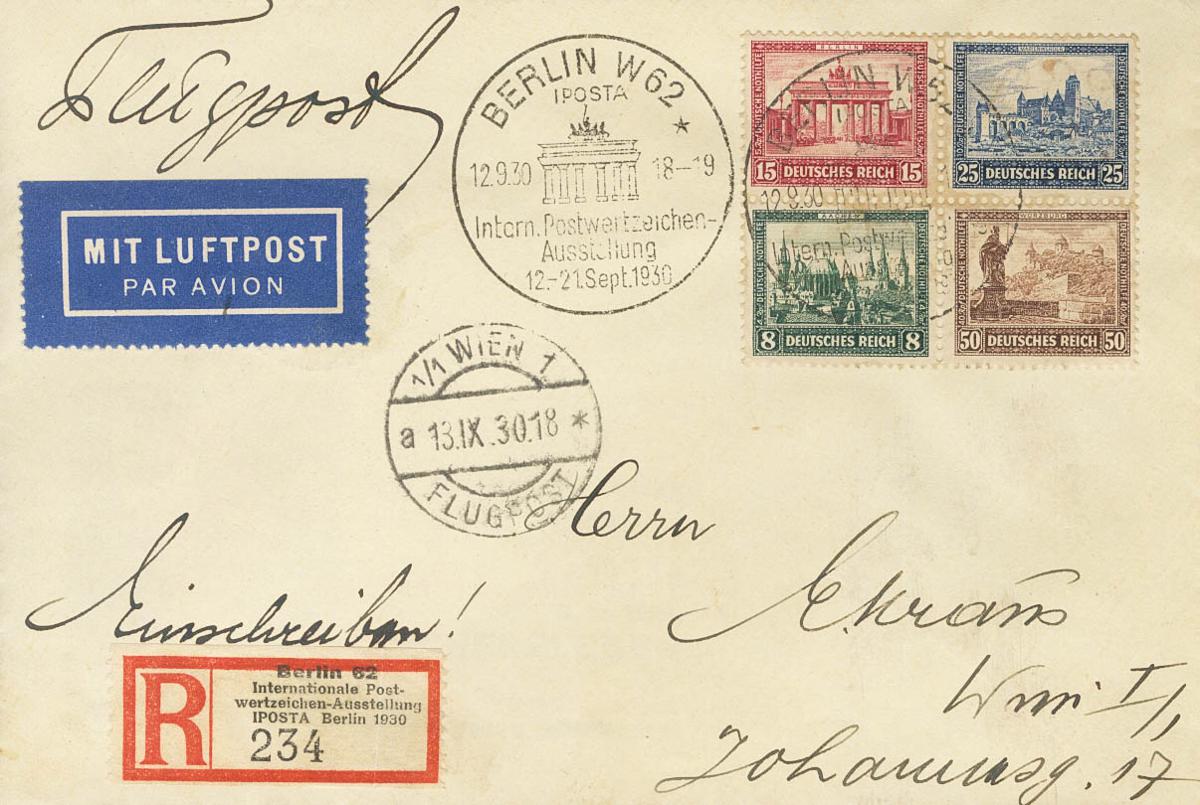 Flugpost
MIT LUFTPOST
PAR AVION
BERLIN W62
IPOSTA
12.9.30 18-19
Intern. Postwertzeichen-
Ausstellung
12.-21.Sept.1930
BERLIN
DEUTSCHE NOTHILFE
15 DEUTSCHES REICH 15
DEUTSCHE NOTHILFE
25 DEUTSCHES REICH 25
AACHEN
DEUTSCHE NOTHILFE
8 DEUTSCHES REICH 8
WÜRZBURG
DEUTSCHE NOTHILFE
50 DEUTSCHES REICH 50
12.9.30
Intern. Postw
1/1 WIEN 1
a 13.IX.30.18 *
FLUGPOST
Herrn
Einschreiben!
Wien I/1
Johannesg. 17
R
Berlin 62
Internationale Post-
wertzeichen-Ausstellung
IPOSTA Berlin 1930
234